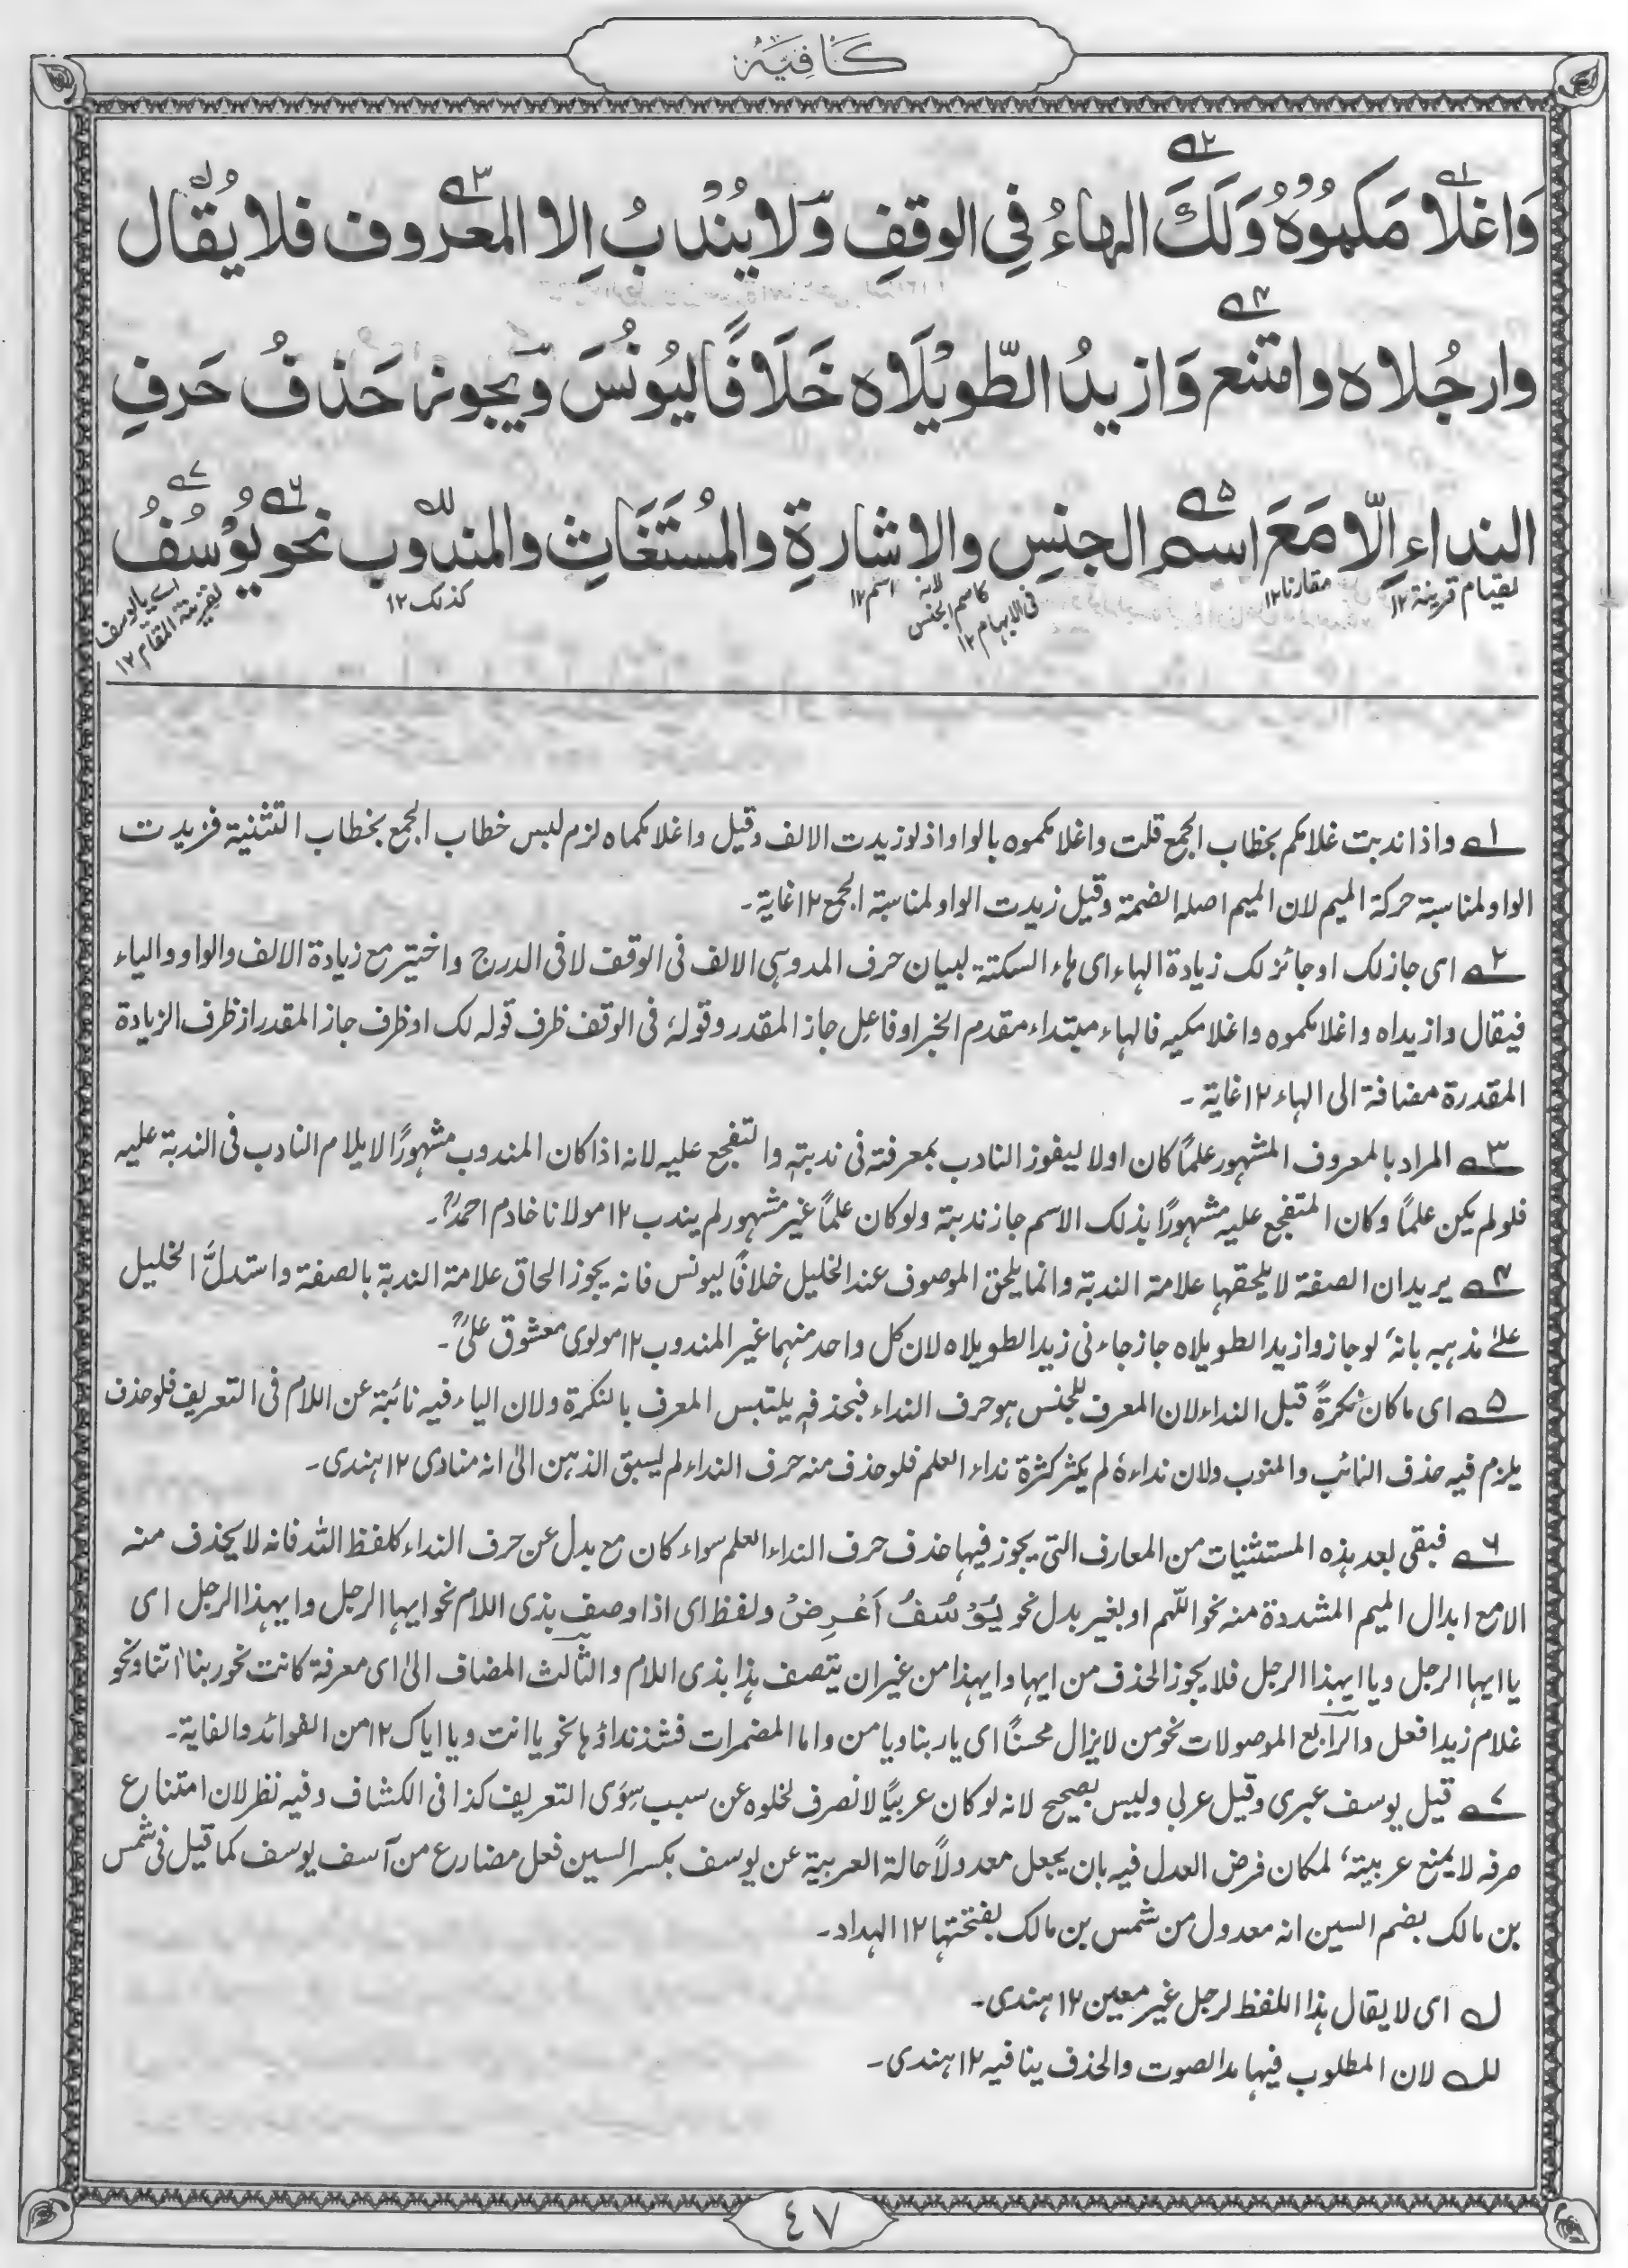 كَافِيَه
وَاغلَا١ مَكُمُوْهُ وَلَكَ٢ الهاءُ فِي الوقفِ وَلايُنْدَبُ اِلا المعروف٣ فلا يُقَال
وارجُلاه وامتنع٤ وَازيدُ الطّويْلَاه خَلَافًا لیُونُسَ ويجوز حَذفُ حَرفِ
النداءِ اِلّا مَعَ اسمِ الجنسِ٥ والاشارةِ والمُسْتَغَاثِ والمندوبِ نحو٦ يُوْسُفُ٧
لقيام قرينة ١٢ مقارنا ١٢ لانه كاسم الجنس فى الابهام ١٢ اسم ١٢ كذلك ١٢ اے يا يوسف بقرينة المقام ١٢
١ واذا ندبت غلامكم بخطاب الجمع قلت واغلامكموه بالواو اذ لو زيدت الالف وقيل واغلامكماه لزم لبس خطاب الجمع بخطاب التثنية فزيدت
الواو لمناسبة حركة الميم لان الميم اصله الضمة وقيل زيدت الواو لمناسبة الجمع ١٢ غاية۔
٢ اى جاز لك او جائز لك زيادة الهاء اى هاء السكتة لبيان حرف المد وهى الالف فى الوقف لا فى الدرج واختير مع زيادة الالف والواو والياء
فيقال وازيداه واغلامكموه واغلامكيه فالهاء مبتداء مقدم الخبر او فاعل جاز المقدر وقولهٗ فى الوقف ظرف قوله لك او ظرف جاز المقدر از ظرف الزيادة
المقدرة مضافة الى الهاء ١٢ غاية۔
٣ المراد بالمعروف المشهور علمًا كان اولا ليفوز النادب بمعرفته فى ندبته والتفجع عليه لانه اذا كان المندوب مشهورًا لا يلام النادب فى الندبة عليه
فلو لم يكن علمًا وكان المتفجع عليه مشهورًا بذلك الاسم جاز ندبة ولو كان علمًا غير مشهور لم يندب ١٢ مولانا خادم احمدؒ۔
٤ يريد ان الصفة لا يلحقها علامة الندبة وانما يلحق الموصوف عند الخليل خلافًا ليونس فانه يجوز الحاق علامة الندبة بالصفة واستدلَّ الخليل
علىٰ مذهبه بانهٗ لو جاز وازيد الطويلاه جاز جاءنى زيد الطويلاه لان كل واحد منهما غير المندوب ١٢ مولوى معشوق علىؒ۔
٥ اى ما كان نكرةً قبل النداء لان المعرف للجنس هو حرف النداء فبحذفه يلتبس المعرف بالنكرة ولان الياء فيه نائبة عن اللام فى التعريف فلو حذف
يلزم فيه حذف النائب والمنوب ولان نداءهٗ لم يكثر كثرة نداء العلم فلو حذف منه حرف النداء لم يسبق الذهن الىٰ انه منادى ١٢ هندى۔
٦ فبقى بعد هذه المستثنيات من المعارف التى يجوز فيها حذف حرف النداء العلم سواء كان مع بدل عن حرف النداء كلفظ اللّٰه فانه لا يحذف منه
الا مع ابدال الميم المشددة منه نحو اللّٰهم او بغير بدل نحو يُوْسُفُ اَعْرِضْ ولفظ اى اذا وصف بذى اللام نحو ايها الرجل وايهذا الرجل اى
يا ايها الرجل ويا ايهذا الرجل فلا يجوز الحذف من ايها وايهذا من غير ان يتصف هذا بذى اللام والثالث المضاف الىٰ اى معرفة كانت نحو ربنا اٰتنا ونحو
غلام زيد افعل والرابع الموصولات نحو من لا يزال محسنًا اى يا ربنا ويا من واما المضمرات فشذ نداؤها نحو يا انت ويا اياك ١٢ من الفوائد والغاية۔
٧ قيل يوسف عبرى وقيل عربى وليس بصحيح لانه لو كان عربيًا لانصرف لخلوه عن سبب سِوَى التعريف كذا فى الكشاف وفيه نظر لان امتناع
صرفه لا يمنع عربيتهٗ لمكان فرض العدل فيه بان يجعل معدولاً حالة العربية عن يوسف بكسر السين فعل مضارع من آسف يوسف كما قيل فى شمس
بن مالك بضم السين انه معدول من شمس بن مالك بفتحتها ١٢ الهداد۔
ل اى لا يقال هذا اللفظ لرجل غير معين ١٢ هندى۔
لل لان المطلوب فيها مد الصوت والحذف ينافيه ١٢ هندى۔
٤٧